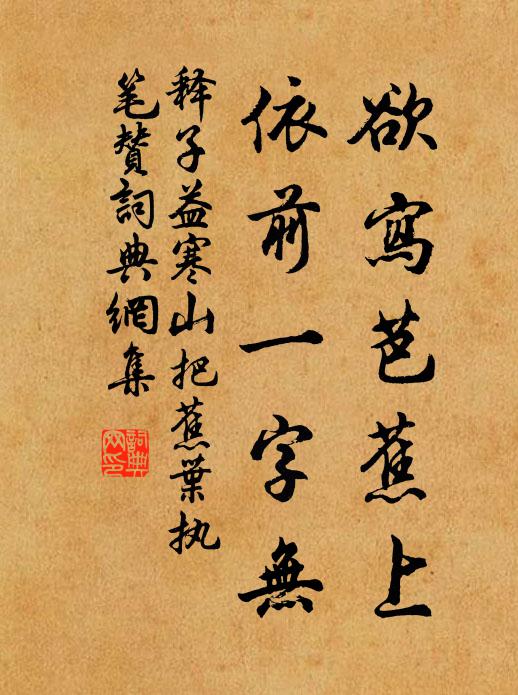 欲寫芭蕉上
依前一字無
释子益寒山把蕉葉执
笔赞詞典網集
詞典
网印